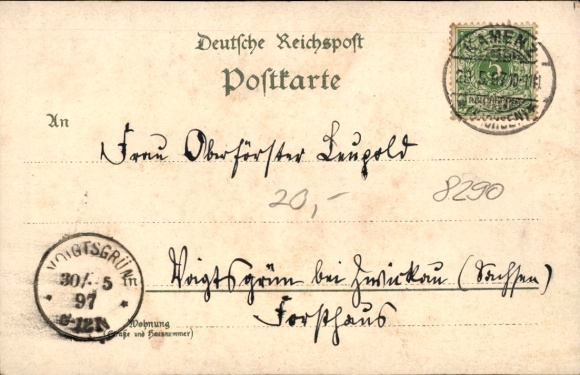 Deutsche Reichspost
Postkarte
KAMENZ
5
97 10-11
(SACHSEN)
An
Frau Oberförster Leupold
20,-
8290
VOIGTSGRÜN
30/5
97
-12N
in
Voigtsgrün bei Zwickau (Sachsen)
Forsthaus
Wohnung
(Straße und Hausnummer)